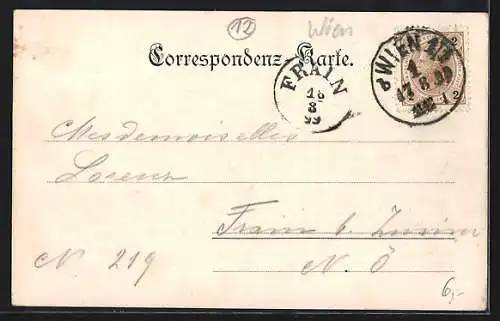 12
Wien
Correspondenz-Karte.
FRAIN
18
8
99
WIEN 1/1
1
17.8.99
2
2
Mesdemoiselles
Lorenz
Frain b. Znaim
N. Ö
N 219
6,-